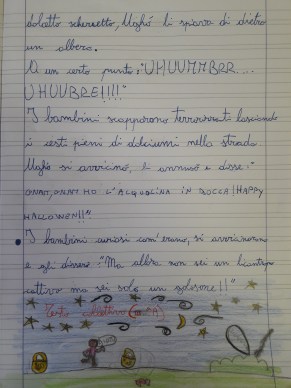 dolcetto scherzetto, Ughó li spava di dietro
un albero.
A un certo punto,:"UHUUMMBRR...
UHUUBRE!!!!"
I bambini scapparono terrorizzati lasciando
i cesti pieni di dolciumi nella strada
Ugho si avvicinó, li annusó e disse:"
GNAM,GNAM HO L'AQUOLINA IN BOCCA!HAPPY
HALLOWEEN!!".
I bambini curiosi com'erano, si avvicinarono
e gli dissero "Ma allora non sei un licantropo
cattivo ma sei solo un golosone!!"
Testo collettivo